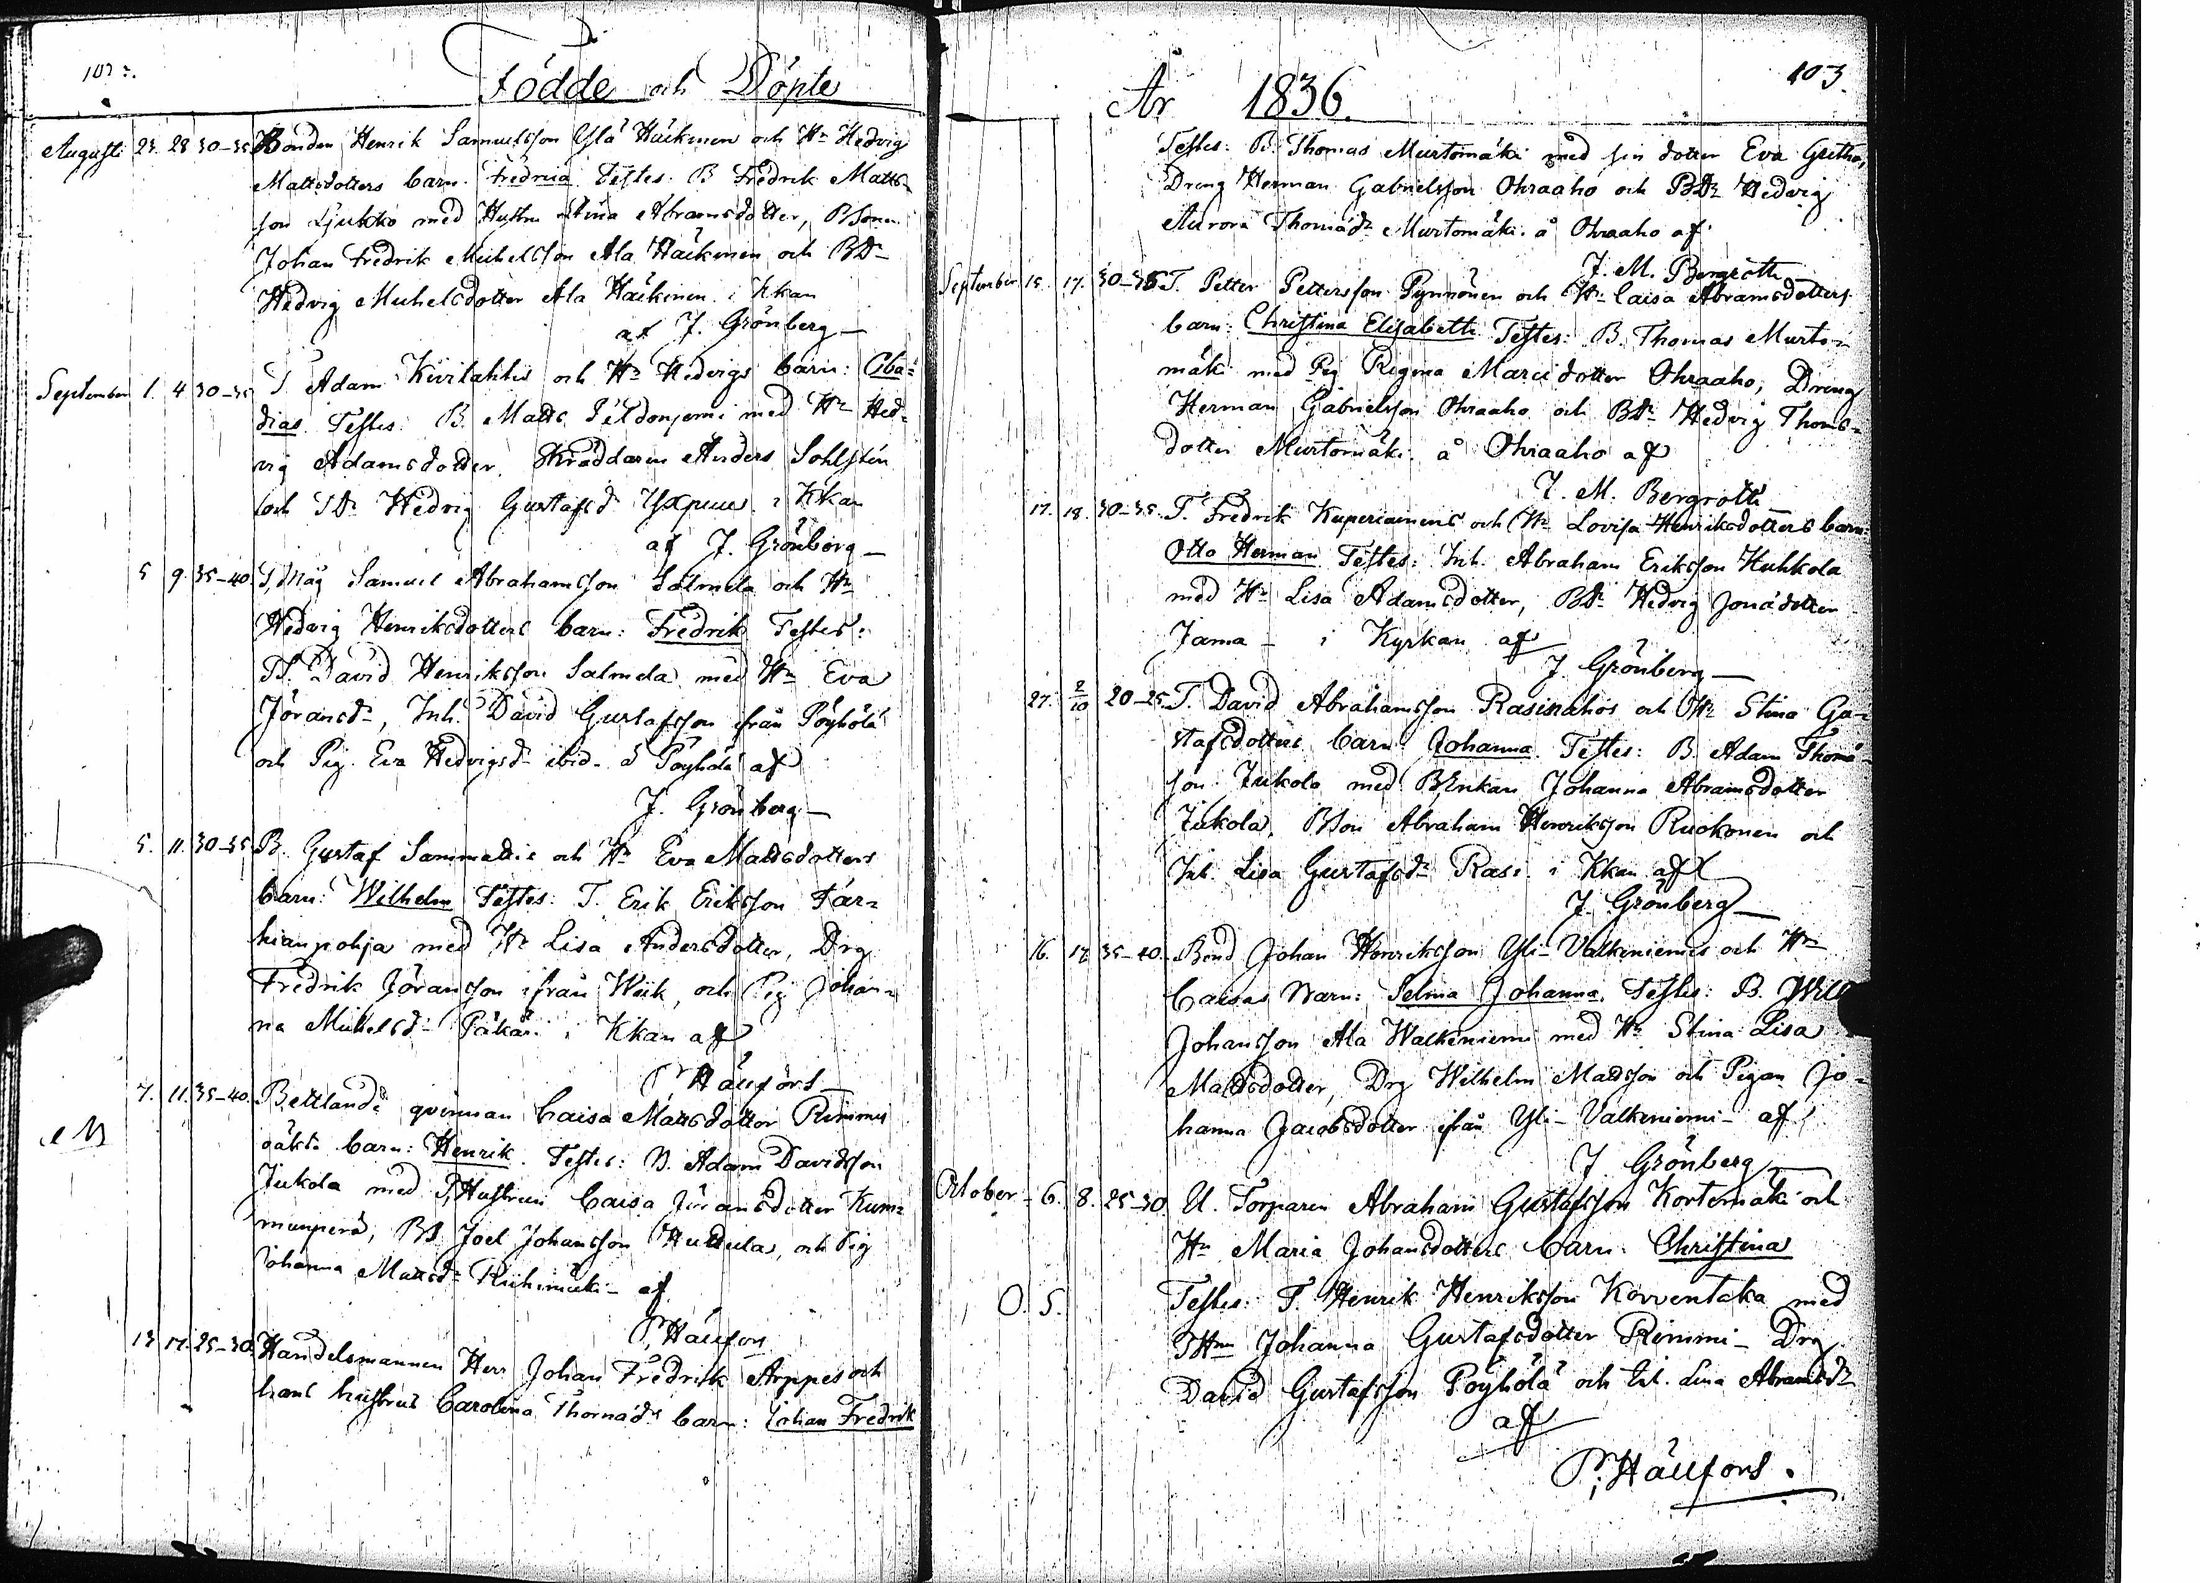 102.
Födde och Döpte
Augusti 23. 28 30-35 Bonden Henrik Samuelsson Ylä Häckinen och Hu Hedvig
Mattsdotters barn. Fredrica Testes. B Fredrik Matts-
son Ljukko med Hustru Stina Abramsdotter, BSonen
Johan Fredrik Michelsson Ala Häckinen och BDr
Hedvig Michelsdotter Ala Häckinen i Kkan
af J. Grönberg
September 1. 4 30-35 T Adam Kivilahtis och Hu Hedvigs barn: Oba-
dias Testes: B. Matts med Hu Hed-
vig Adamsdotter, Skräddaren Anders Sohlstén
och TDr Hedvig Gustafsd i Kkan
af J. Grönberg
5 9. 35-40. T, Måg Samuel Abrahamsson Salmela och Hu
Hedvig Henriksdotters barn: Fredrik Testes:
TS. David Henriksson Salmela med Hu Eva
Jöransdr, Inh. David Gustafsson ifrån Pöyhölä
och Pig. Eva Hedvigsdr ibid. å Pöyhölä af
J. Grönberg
5. 11. 30-35 B. Gustaf Sammattis och Hu Eva Mattsdotters
barn: Wilhelm Testes: T. Erik Eriksson Tär-
hianpohja med Hu Lisa Andersdotter, Drg
Fredrik Jöransson ifrån Wiik, och Pig Johan-
na Michelsdr Päkäri i Kkan af
P. Häufors
7. 11. 35-40. Bettlande qvinnan Caisa Mattsdotter Rimmis
oäkta barn: Henrik. Testes: B. Adam Davidsson
Jukola med T, Hustrun Caisa Jöransdotter Kum-
munperä, BS Joel Johansson Huttula, och Pig
Johanna Mattsdr Riihimäki af
P, Häufors
13 17. 25-30. Handelsmannen Herr Johan Fredrik Arppes och
hans hustrus Carolina Thomædrs barn: Johan Fredrik
År 1836.
103.
Testes: B. Thomas Murtomäki med sin dotter Eva Gretha,
Dreng Herman Gabrielsson Ohraaho och BDr Hedvig
Aurora Thomædr Murtomäki å Ohraaho af
J. M. Bergroth
September 15. 17. 30-35 T. Petter Pettersson Pynnönen och Hu Caisa Abramsdotters
barn: Christina Elisabeth Testes: B. Thomas Murto-
mäki med Pig Regina Marcidotter Ohraaho, Dreng
Herman Gabrielsson Ohraaho och BDr Hedvig Thomæ-
dotter Murtomäki å Ohraaho af
J. M. Bergroth
17. 18. 30-35. T. Fredrik Kuperiainens och Hu Lovisa Henriksdotters barn:
Otto Herman Testes: Inh. Abraham Eriksson Huhkola
med Hu Lisa Adamsdotter, BDr Hedvig Jonædotter
Jama - i Kyrkan af
J Grönberg
27. 2/10 20-25. T. David Abrahamsson Rasinahos och Hu Stina Gu-
stafsdotters barn: Johanna Testes: B. Adam Thomæ-
son Jukola med BEnkan Johanna Abramsdotter
Jukola, BSon Abraham Henriksson Ruokonen och
Inh. Lisa Gustafsdr Rasi i Kkan af
J. Grönberg
16. 17. 35-40. Bond Johan Henriksson Yli-Valkeniemis och Hu
Caisas Barn: Selma Johanna. Testes: B. Will
Johansson Ala Walkeniemi med Hu Stina Lisa
Mattsdotter, Drg Wilhelm Mattsson och Pigan Jo-
hanna Jacobsdotter ifrån Yli-Valkeniemi - af
J Grönberg
October 6. 8. 25-30 U. Torparen Abraham Gustafsson Kortemäki och
Hu Maria Johansdotters barn: Christina
O. S.
Testes: T. Henrik Henriksson Korventaka med
THu Johanna Gustafsdotter Rimmi - Drg
David Gustafsson Pöyhölä och Inh. Lina Abramsdr
af
P, Häufors.